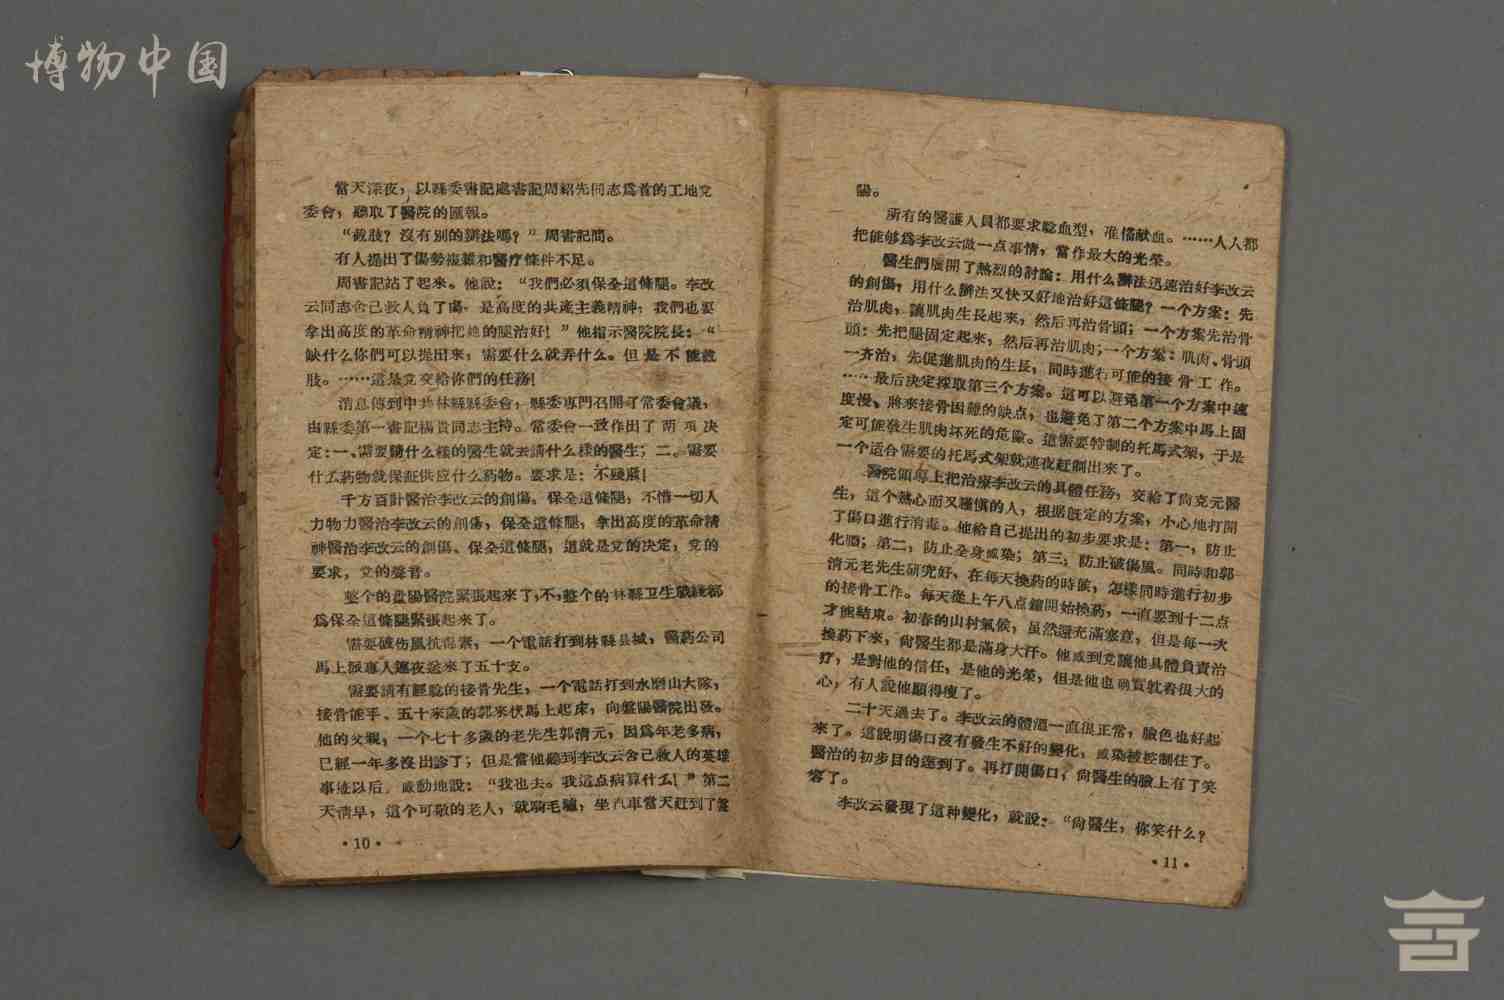 博物中国
當天深夜，以縣委書記處書記周紹先同志爲首的工地党
委會，聽取了醫院的匯報。
“截肢？沒有別的辦法嗎？”周書記問。
有人提出了傷勢複雜和醫疗條件不足。
周書記站了起來。他說：“我們必須保全這條腿。李改
云同志舍己救人負了傷，是高度的共產主義精神，我們也要
拿出高度的革命精神把她的腿治好！”他指示醫院院長：“
缺什么你們可以提出來，需要什么就弄什么。但是不能截
肢。……這是党交給你們的任務！
消息傳到中共林縣縣委會，縣委專門召開了常委會議，
由縣委第一書記楊貴同志主持。常委會一致作出了两項决
定：一、需要請什么樣的醫生就去請什么樣的醫生；二、需要
什么葯物就保証供应什么葯物。要求是：不殘廢！
千方百計醫治李改云的創傷，保全這條腿，不惜一切人
力物力醫治李改云的創傷，保全這條腿，拿出高度的革命精
神醫治李改云的創傷、保全這條腿，這就是党的决定，党的
要求，党的聲音。
整个的盘陽醫院緊張起來了，不，整个的林縣卫生战綫都
爲保全這條腿緊張起來了。
需要破伤風抗毒素，一个電話打到林縣县城，醫葯公司
馬上派專人連夜送來了五十支。
需要請有經驗的接骨先生，一个電話打到水磨山大隊，
接骨能手、五十來歲的郭來伏馬上起床，向盤陽醫院出發。
他的父親，一个七十多歲的老先生郭清元，因爲年老多病，
已經一年多沒出診了；但是當他聽到李改云舍己救人的英雄
事迹以后，感動地說：“我也去。我這点病算什么！”第二
天清早，這个可敬的老人，就騎毛驢，坐汽車當天赶到了盤
·10·
陽。
所有的醫護人員都要求驗血型，准備献血。……人人都
把能够爲李改云做一点事情，當作最大的光榮。
醫生們展開了熱烈的討論：用什么辦法迅速治好李改云
的創傷，用什么辦法又快又好地治好這條腿？一个方案：先
治肌肉，讓肌肉生長起來，然后再治骨頭；一个方案先治骨
頭：先把腿固定起來，然后再治肌肉；一个方案：肌肉、骨頭
一齐治，先促進肌肉的生長，同時進行可能的接骨工作。
……最后决定採取第三个方案。這可以避免第一个方案中速
度慢、將來接骨困難的缺点，也避免了第二个方案中馬上固
定可能發生肌肉坏死的危險。這需要特制的托馬式架，于是
一个适合需要的托馬式架就連夜赶制出來了。
醫院領導上把治療李改云的具體任務，交給了尙克元醫
生，這个熱心而又謹慎的人，根据旣定的方案，小心地打開
了傷口進行消毒。他給自己提出的初步要求是：第一，防止
化膿；第二，防止全身感染；第三，防止破傷風。同時和郭
清元老先生研究好、在每天換葯的時候，怎樣同時進行初步
的接骨工作。每天從上午八点鐘開始換葯，一直要到十二点
才能結束。初春的山村氣侯，虽然還充滿寒意，但是每一次
換葯下來，尙醫生都是滿身大汗。他感到党讓他具體負責治
疗，是對他的信任，是他的光榮，但是他也确實躭着很大的
心，有人說他顯得瘦了。
二十天過去了。李改云的體溫一直很正常，臉色也好起
來了。這說明傷口沒有發生不好的變化，感染被控制住了。
醫治的初步目的達到了。再打開傷口，尙醫生的臉上有了笑
容了。
李改云發現了這种變化，就說：“尙醫生，你笑什么？
·11·